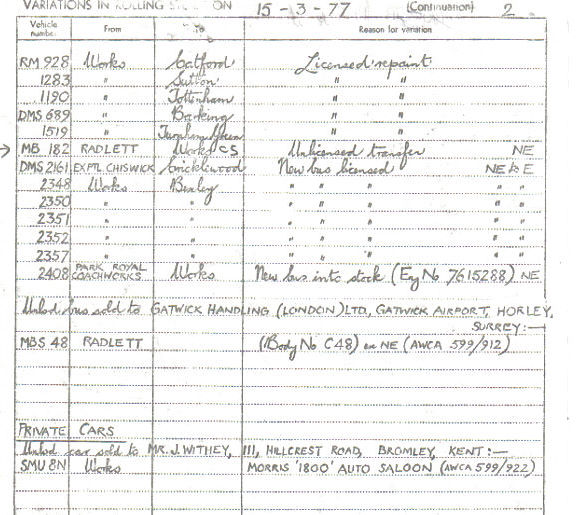 VARIATIONS IN ROLLING STOCK ON 15-3-77 (Continuation) 2
Vehicle number From To Reason for variation
RM 928 Works Catford Licensed repaint
1283 " Sutton " "
1190 " Tottenham " "
DMS 689 " Barking " "
1519 " Turnham Green " "
→ MB 182 RADLETT Works CS Unlicensed transfer NE
DMS 2161 EXPTL CHISWICK Cricklewood New bus licensed NE to E
2348 Works Bexley " " " " "
2350 " " " " " " "
2351 " " " " " " "
2352 " " " " " " "
2357 " " " " " " "
2408 PARK ROYAL COACHWORKS Works New bus into stock (Eng No 7615288) NE
Unlcd bus sold to GATWICK HANDLING (LONDON) LTD, GATWICK AIRPORT, HORLEY,
SURREY:—
MBS 48 RADLETT (Body No C48) ex NE (AWCA 599/912)
PRIVATE CARS
Unlcd car sold to MR. J. WITHEY, 111, HILLCREST ROAD, BROMLEY, KENT:—
SMU 8N Works MORRIS '1800' AUTO SALOON (AWCA 599/922)